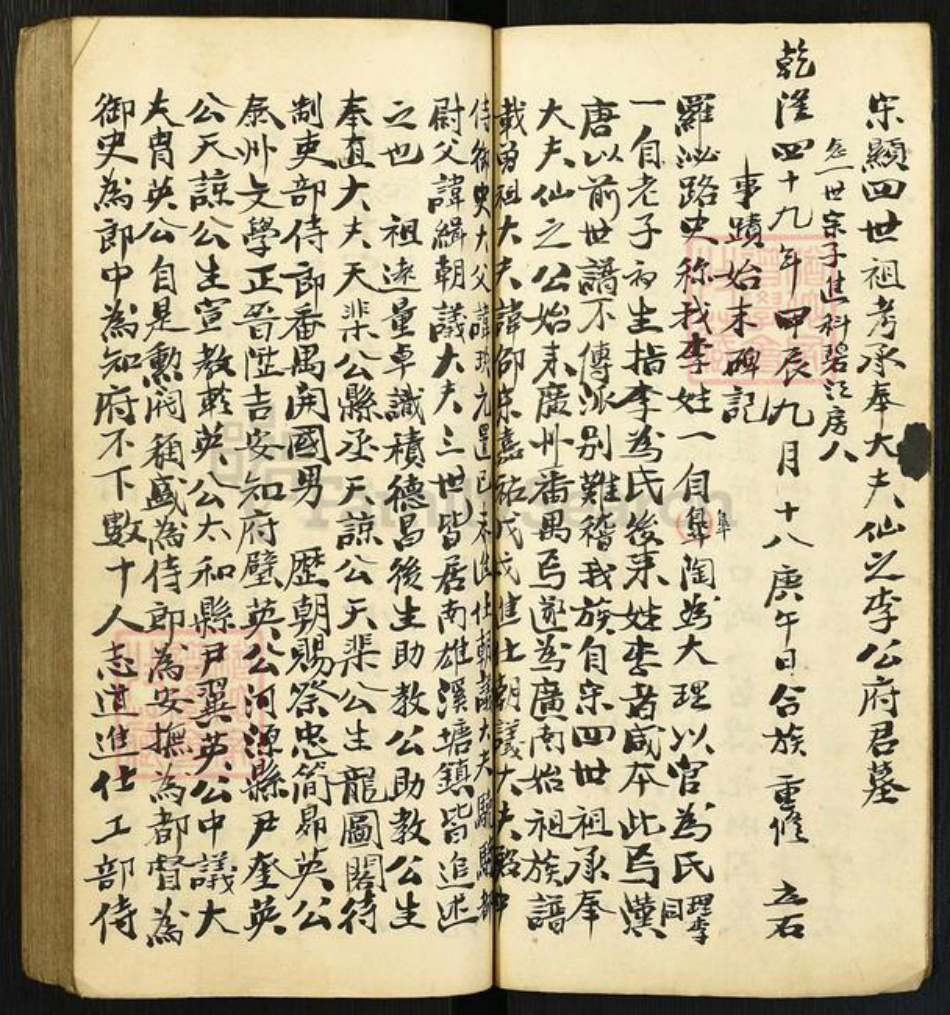 宋顯四世祖考承奉大夫仙之李公府君墓
世宗子進科碧江房人
乾隆四十九年甲辰九月十八庚午日合族重修 立石
事蹟始末碑記
羅泌路史称我李姓一自皋陶為大理以官為氏理李同
一自老子初生指李為氏後来姓李者咸本此焉漢
唐以前世譜不傳派别難稽我族自宋四世祖承奉
大夫仙之公始来廣州番禺焉遂為廣南始祖族譜
載勇祖大夫諱卻宋嘉祐戊戌進士朝議大夫殿中
侍御史大父諱元豐已未進仕朝議大夫驍騎都
尉父諱緝朝議大夫三世皆居南雄溪塘鎮皆追述
之也 祖遠量卓識積德昌後生助教公助教公生
奉直大夫天棐公縣丞天諒公天棐公生龍圖閣待
制吏部侍郎番禺開國男 歷朝賜祭忠简昴英公
泰州文學正晉陞吉安知府璧英公河源縣尹奎英
公天諒公生宣教乾英公太和縣尹翼英公中議大
夫胄英公自是勳閥稱盛為侍郎為安撫為都督為
御史為郎中為知府不下數十人志道進仕工部侍